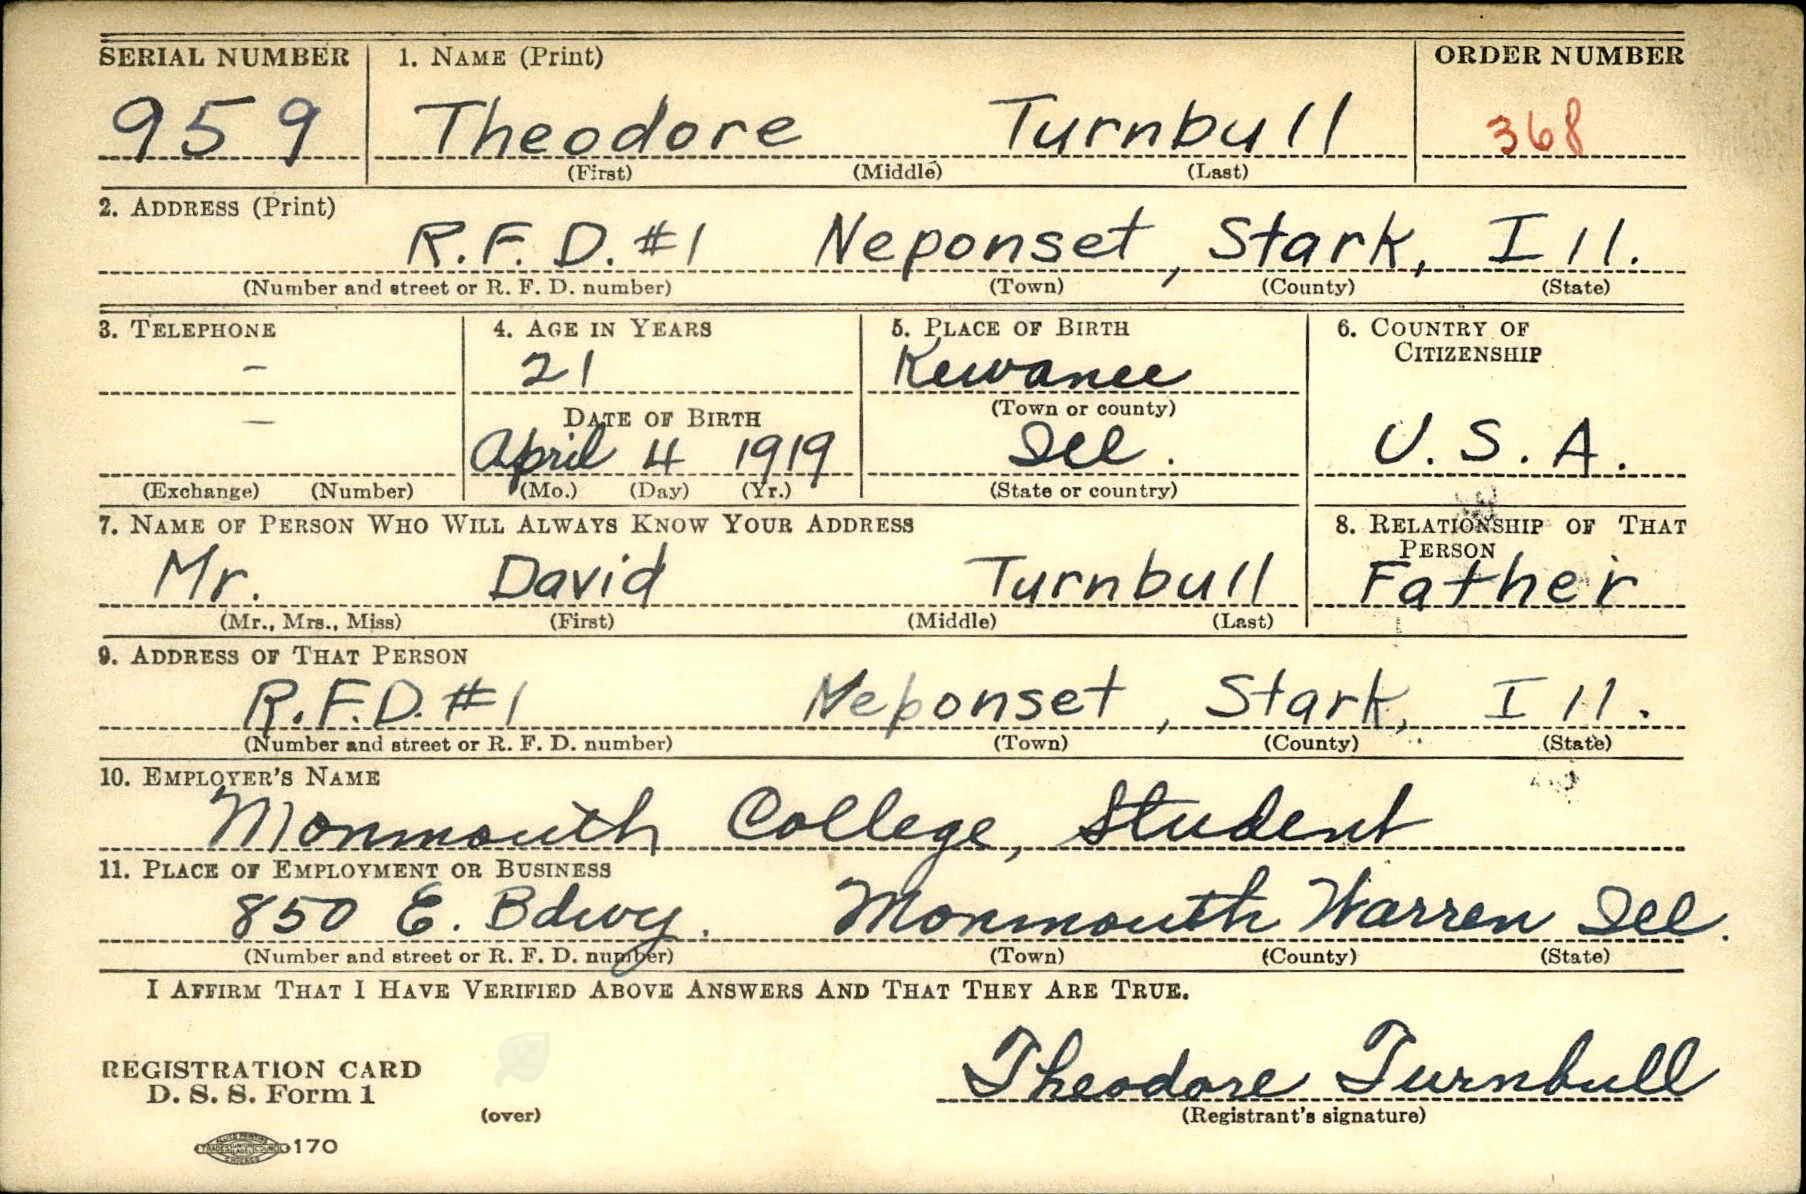 SERIAL NUMBER 1. NAME (Print) ORDER NUMBER
959 Theodore Turnbull 368
(First) (Middle) (Last)
2. ADDRESS (Print)
R.F.D. #1 Neponset, Stark, Ill.
(Number and street or R. F. D. number) (Town) (County) (State)
3. TELEPHONE 4. AGE IN YEARS 5. PLACE OF BIRTH 6. COUNTRY OF
CITIZENSHIP
– 21 Kewanee
DATE OF BIRTH (Town or county)
– April 4 1919 Ill. U.S.A.
(Exchange) (Number) (Mo.) (Day) (Yr.) (State or country)
7. NAME OF PERSON WHO WILL ALWAYS KNOW YOUR ADDRESS 8. RELATIONSHIP OF THAT
PERSON
Mr. David Turnbull Father
(Mr., Mrs., Miss) (First) (Middle) (Last)
9. ADDRESS OF THAT PERSON
R.F.D. #1 Neponset, Stark, Ill.
(Number and street or R. F. D. number) (Town) (County) (State)
10. EMPLOYER'S NAME
Monmouth College, Student
11. PLACE OF EMPLOYMENT OR BUSINESS
850 E. Bdwy. Monmouth Warren Ill.
(Number and street or R. F. D. number) (Town) (County) (State)
I AFFIRM THAT I HAVE VERIFIED ABOVE ANSWERS AND THAT THEY ARE TRUE.
REGISTRATION CARD
D. S. S. Form 1
Theodore Turnbull
(over) (Registrant's signature)
170